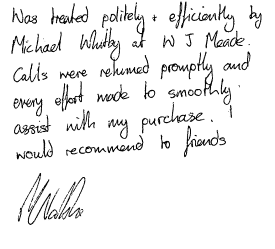 Was treated politely + efficiently by
Michael Whitby at W J Meade.
Calls were returned promptly and
every effort made to smoothly
assist with my purchase. I
would recommend to friends